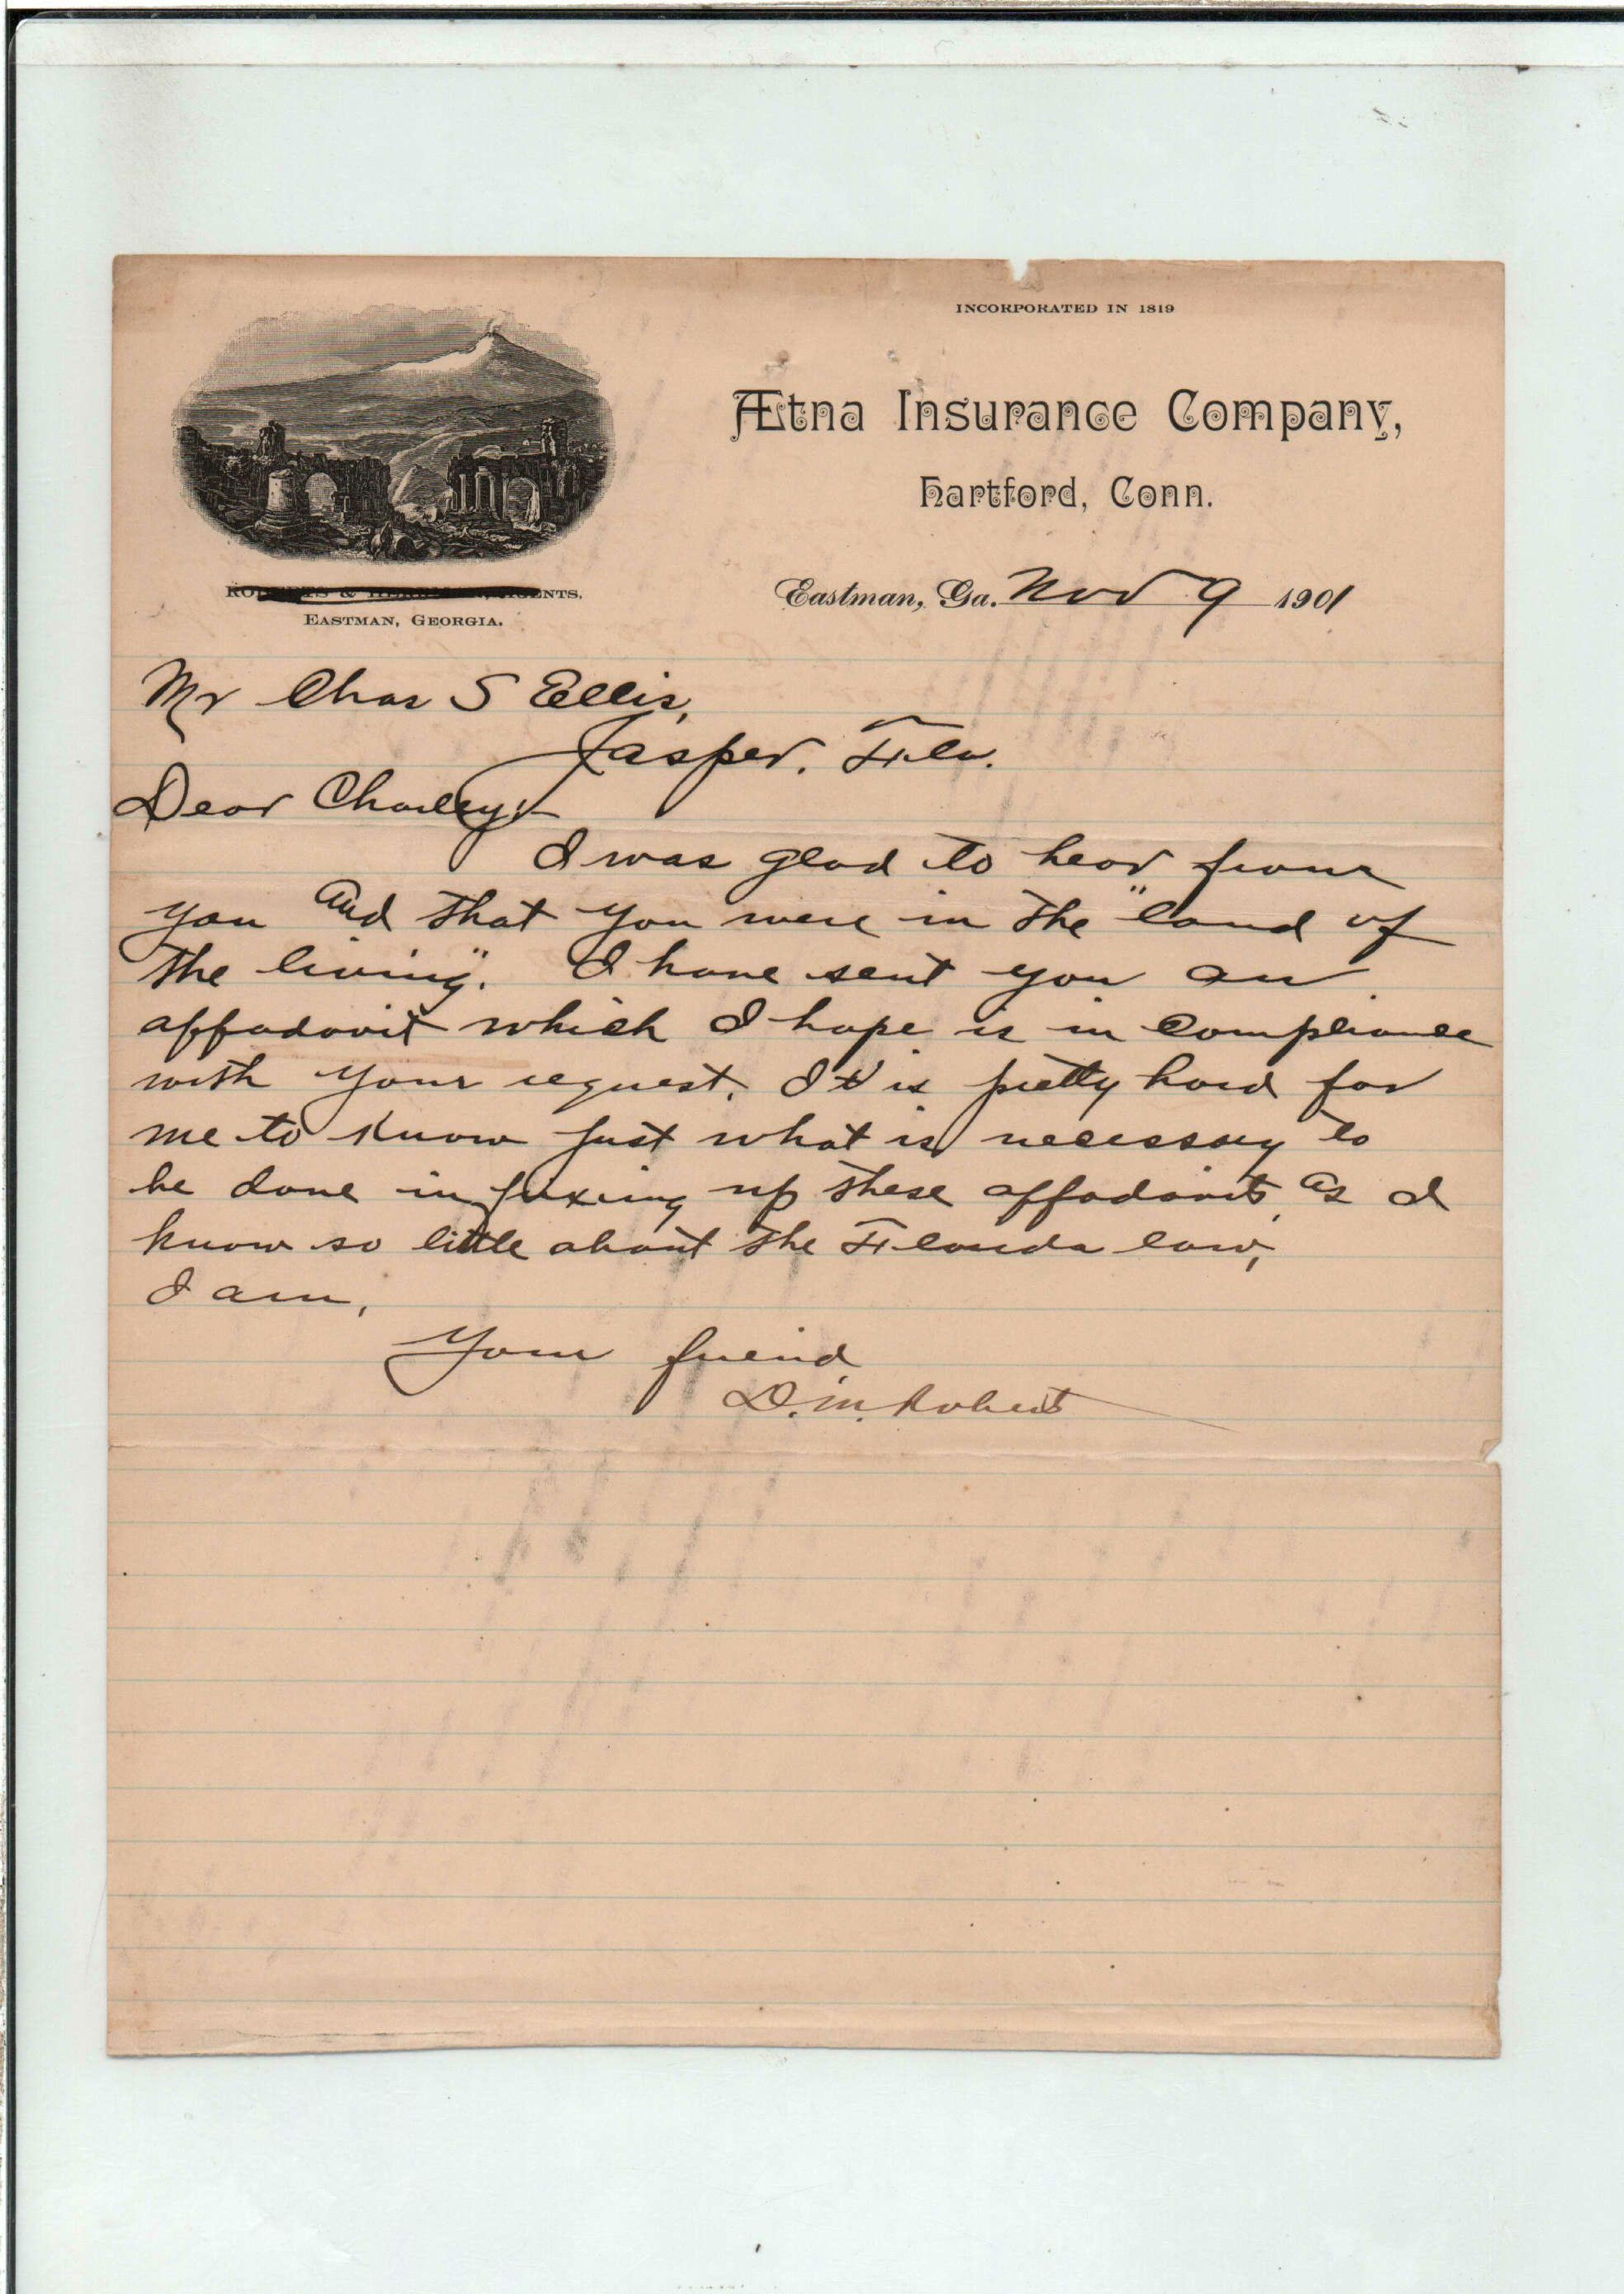 INCORPORATED IN 1819
Ætna Insurance Company,
Hartford, Conn.
& AGENTS.
EASTMAN, GEORGIA.
Eastman, Ga. Nov 9 1901
Mr Chas S Ellis,
Jasper. Fla.
Dear Charley:-
I was glad to hear from
you And that you were in the "land of
the living". I have sent you an
affadavit which I hope is in compliance
with your request. It is pretty hard for
me to know just what is necessary to
be done in fixing up these affadavits, as I
know so little about the Florida law,
I am,
Your friend
D. M. Roberts